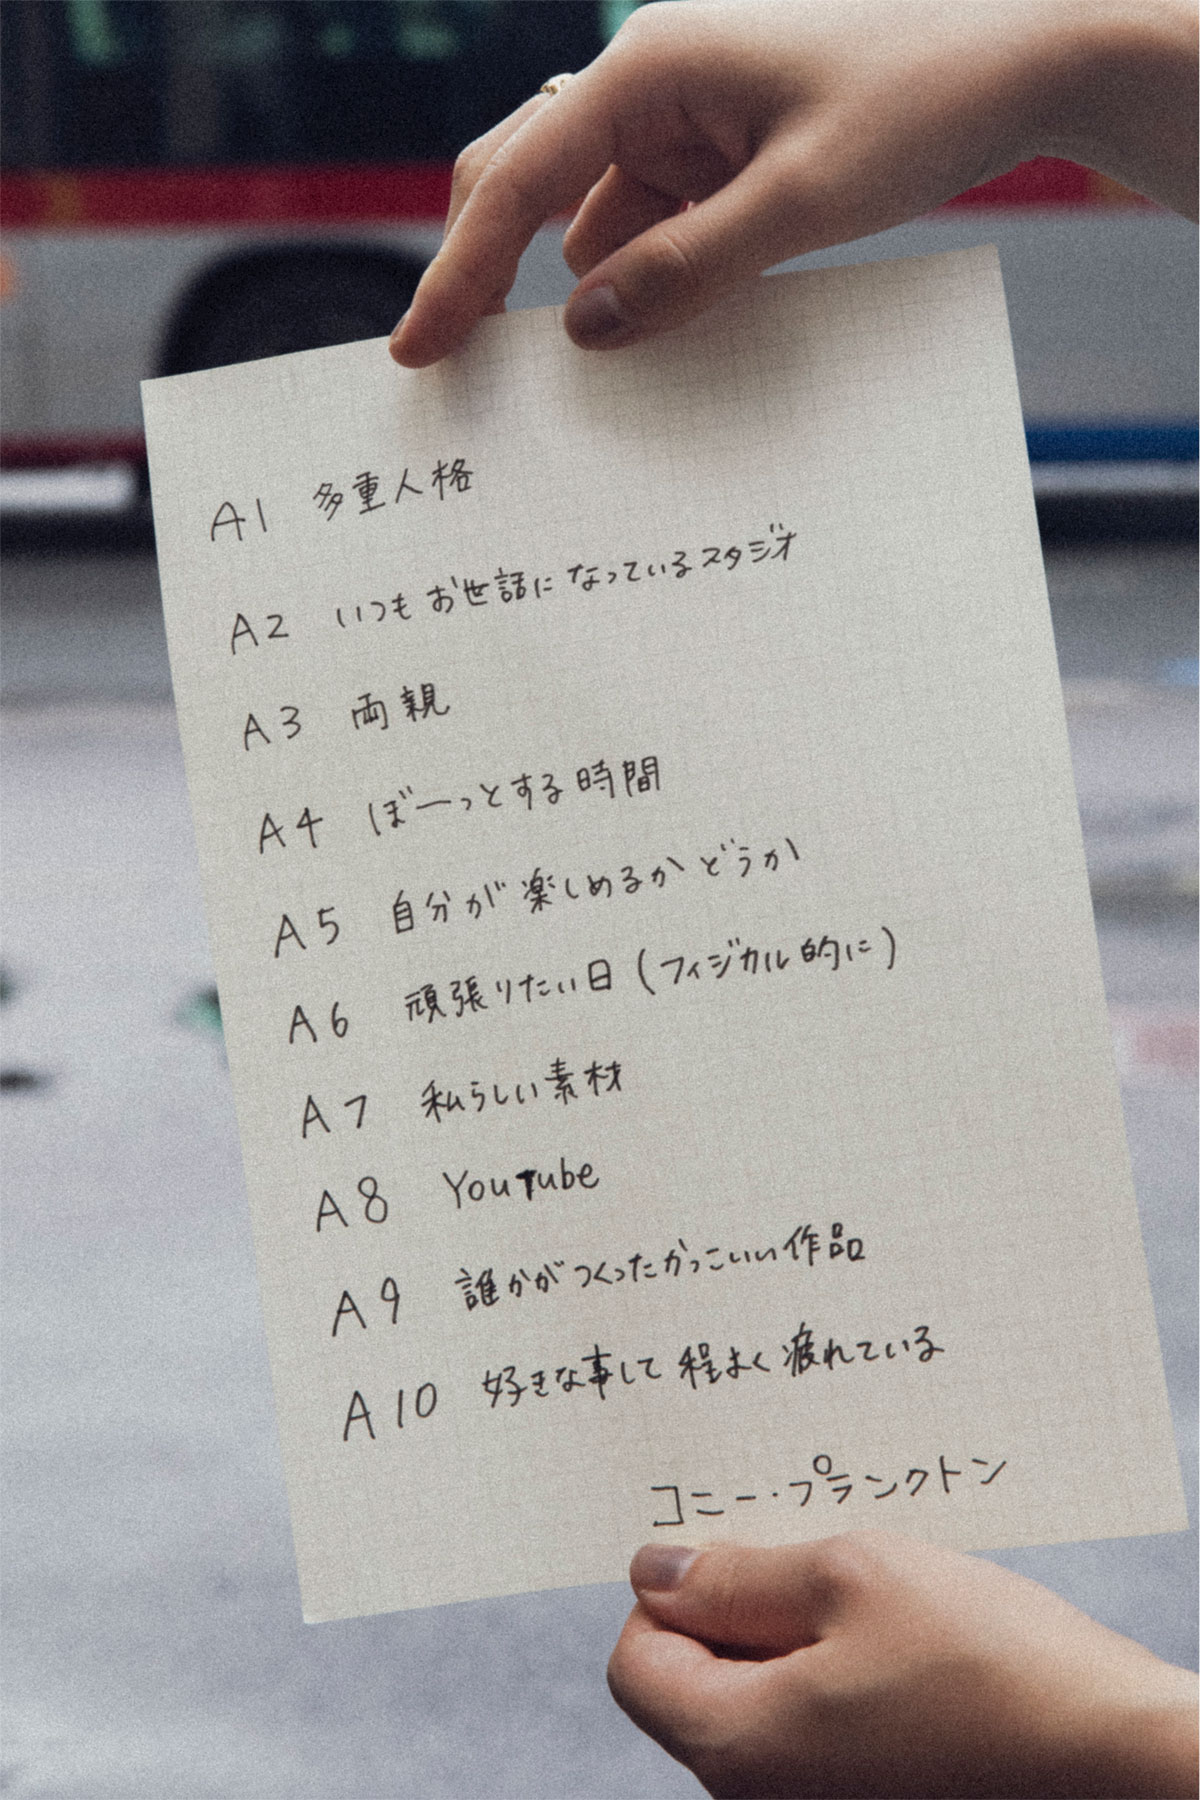 A1 多重人格
A2 いつもお世話になっているスタジオ
A3 両親
A4 ぼーっとする時間
A5 自分が楽しめるかどうか
A6 頑張りたい日(フィジカル的に)
A7 私らしい素材
A8 YouTube
A9 誰かがつくったかっこいい作品
A10 好きな事して程よく疲れている
コニー・プランクトン